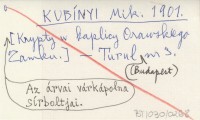 KUBÍNYI Mik. 1901.
[Krypty w kaplicy Orawskego
Zamku.] — Turul nr 3.
(Budapest)
Az árvai várkápolna
sírboltjai.